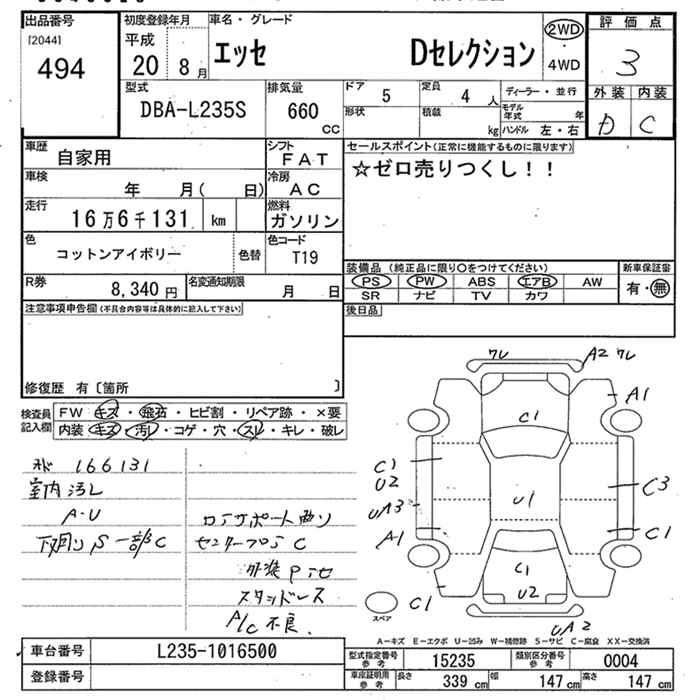 出品番号
[2044]
494
初度登録年月
平成
20 8月
車名・グレード
エッセ Dセレクション
2WD
・
4WD
評価点
3
外装 内装
D C
型式
DBA-L235S
排気量
660
CC
ドア 5
定員 4 人
形状
積載 kg
ディーラー・並行
モデル年式 年
ハンドル 左・右
車歴
自家用
シフト
FAT
車検
年 月( 日)
冷房
AC
走行
16万6千131 km
燃料
ガソリン
色
コットンアイボリー
色替
色コード
T19
R券
8,340 円
名変通知期限
月 日
セールスポイント(正常に機能するものに限ります)
☆ゼロ売りつくし!!
装備品(純正品に限り〇をつけてください)
PS PW ABS エアB AW
SR ナビ TV カワ
新車保証書
有・無
後日品
注意事項申告欄(不具合内容等は具体的に記入して下さい)
修復歴 有〔箇所 〕
検査員記入欄
FW キズ・飛石・ヒビ割・リペア跡・×要
内装 キズ・汚レ・コゲ・穴・スレ・キレ・破レ
166131
室内汚レ
A・U
下回りS一部C
コアサポート曲り
C
外装
スタッドレス
A/C不良
ワレ
A2 ワレ
A1
C1
C1
U2
UA3
A1
C1
U1
C3
C1
C1
U2
UA2
スペア
A-キズ E-エクボ U-凹み W-補修跡 S-サビ C-腐食 XX-交換済
車台番号
L235-1016500
登録番号
型式指定番号 参考
15235
類別区分番号 参考
0004
車庫証明用 参考
長さ 339 cm
幅 147 cm
高さ 147 cm